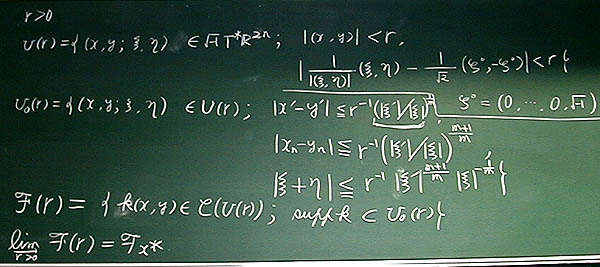 r>0
U(r) = { (x, y; ξ, η) ∈ √-1 T*R²ⁿ ; |(x, y)| < r,
| 1/|(ξ, η)| (ξ, η) - 1/√2 (ξ°, -ξ°) | < r }
U₀(r) = { (x, y; ξ, η) ∈ U(r) ; |x'-y'| ≦ r⁻¹ (|ξ'|/|ξ|)^{1/m} , ξ° = (0, ⋯, 0, √-1)
|xₙ-yₙ| ≦ r⁻¹ (|ξ'|/|ξ|)^{(m+1)/m}
|ξ+η| ≦ r⁻¹ |ξ'|^{(m+1)/m} |ξ|^{-1/m} }
F(r) = { k(x, y) ∈ C(U(r)) ; supp k ⊂ U₀(r) }
lim_{r>0} F(r) = F_{x*}.